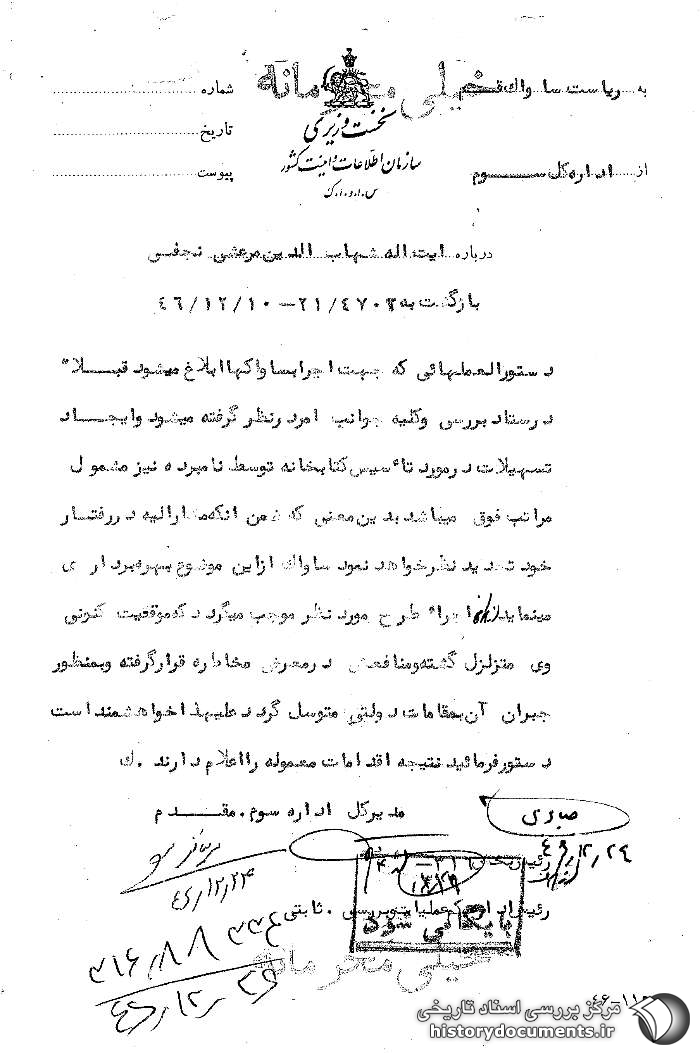 خیلی محرمانه
به ریاست ساواک قم
شماره
نخست وزیری
تاریخ
سازمان اطلاعات و امنیت کشور
از اداره کل سوم
پیوست
س.ا.و.ا.ک
درباره ایت اله شهاب الدین مرعشی نجفی
بازگشت به ۲۱/۴۷۰۲-۴۶/۱۲/۱۰
دستورالعملهائی که جهت اجرا بساواکها ابلاغ میشود قبلا"
در ستاد بررسی وکلیه جوانب امر در نظر گرفته میشود وایجاد
تسهیلات در مورد تأسیس کتابخانه توسط نامبرده نیز مشمول
مراتب فوق میباشد بدین معنی که ضمن انکه مشارالیه در رفتار
خود تجدید نظر خواهد نمود ساواک از این موضوع بهره برداری
مینماید اجراء طرح مورد نظر موجب میگردد که موقعیت کنونی
وی متزلزل گشته و منافعش در معرض مخاطره قرار گرفته و بمنظور
جبران آن بمقامات دولتی متوسل گردد علیهذا خواهشمند است
دستور فرمائید نتیجه اقدامات معموله را اعلام دارند .ک
مدیرکل اداره سوم . مقدم
صابری
۴۶/۱۲/۲۴
رئیس بخش ۳۱۶
۴۶/۱۲/۲۳
رئیس اداره یکم عملیات و بررسی . ثابتی
بایگانی شود
۳۱۶/۸۸
۴۶/۱۲/۲۶
خیلی محرمانه
۴۶-۱۱
مرکز بررسی اسناد تاریخی
historydocuments.ir